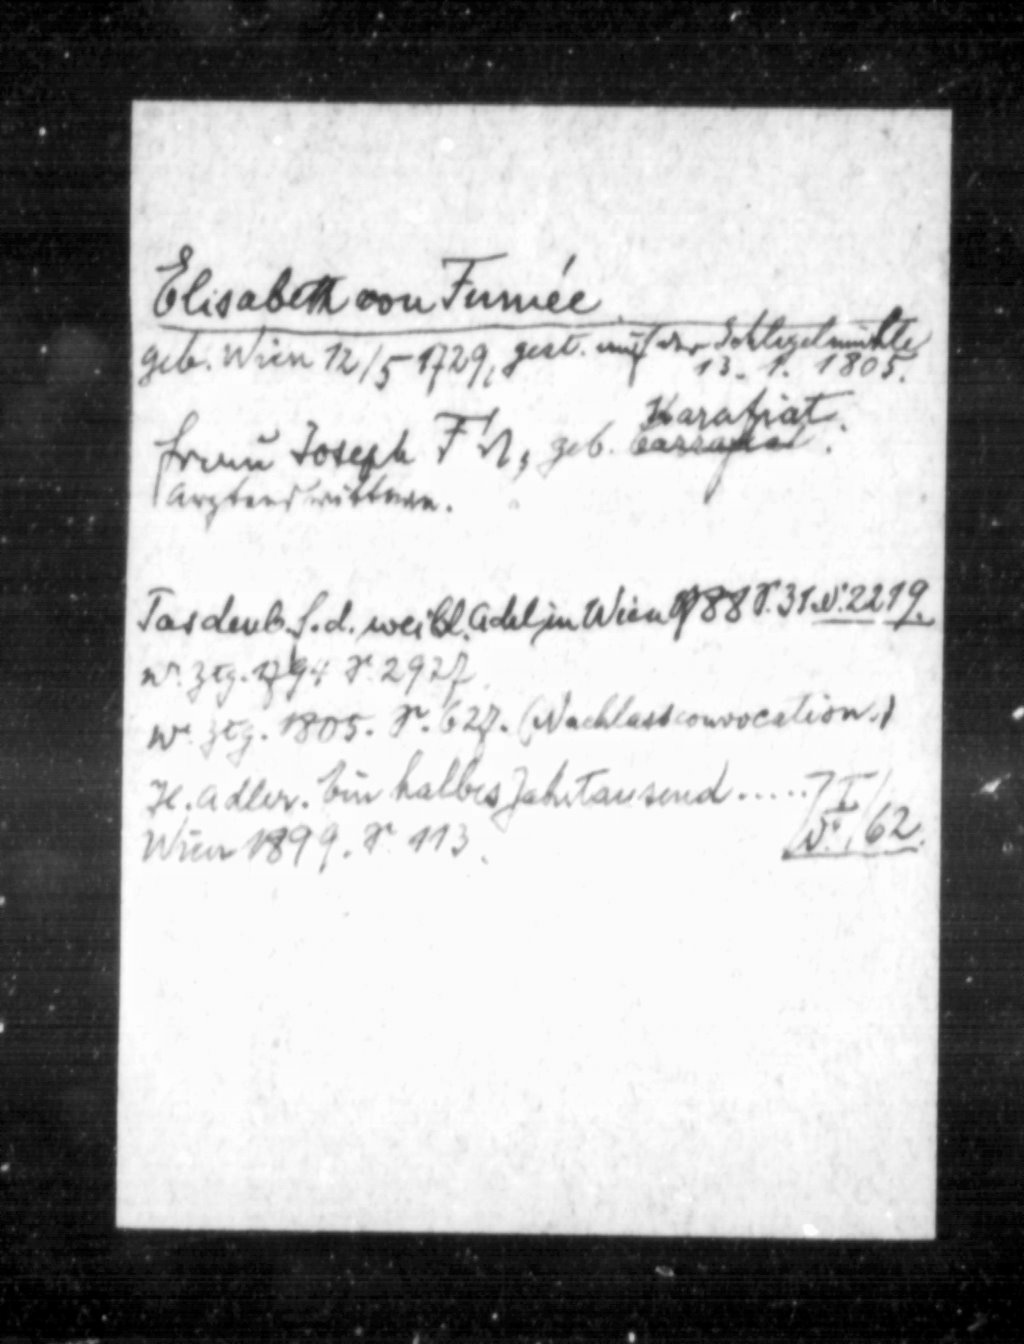 Elisabeth von Fumée
geb. Wien 12/5 1729, gest. auf der Schlegelmühle
13. 1. 1805.
Karafiat
Frau Joseph F's, geb. Carrafiat.
Arztens wittwe.
Taschenb. f. d. weibl. Adel in Wien 1788 S. 31. N. 2219.
W. Ztg. 1794 S. 2927
W. Ztg. 1805. S. 627. (Nachlassconvocation.)
H. Adler. Ein halbes Jahrtausend .....
I
Wien 1899. S. 113. N. 62.